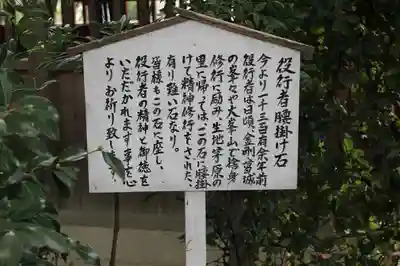 役行者腰掛け石
今より一千三百有余年前
役行者は日頃、金剛葛城
の峯々や大峯山で捨身
修行に励み、生地茅原の
里に帰っては、この石に腰掛
けて精神修行をされた、
有り難い石なり。
皆様もこの石に座し、
役行者の精神と御徳を
いただかれます事を心
よりお祈り致します。